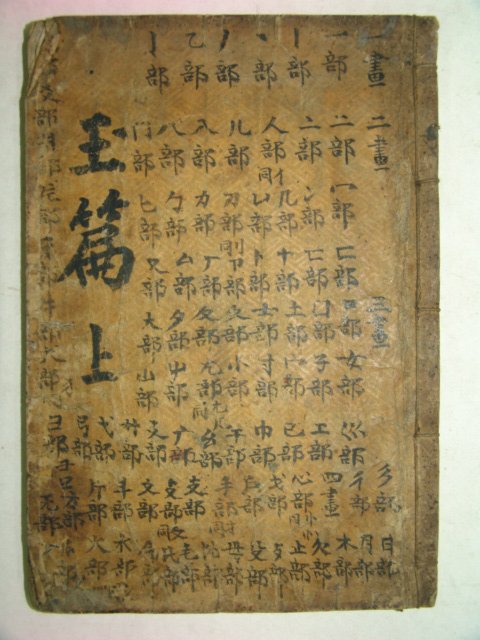 玉篇上
一畫 一部 丨部 丶部 丿部 乙部 亅部
二畫 二部 亠部 人部同亻 儿部 入部 八部 冂部
冖部 冫部 几部 凵部 刀部同刂 力部 勹部 匕部
匚部 匸部 十部 卜部 卩部 厂部 厶部 又部
三畫 口部 囗部 土部 士部 夂部 夊部 夕部 大部
女部 子部 宀部 寸部 小部 尢部 屮部 山部
巛部 工部 己部 巾部 干部 幺部 广部 廴部 廾部 弋部 弓部 彐部
彡部 彳部 四畫 心部 戈部 戶部 手部 支部 攴部同攵 文部 斗部 斤部 方部 无部
日部 月部 木部 欠部 止部 歹部 殳部 毋部 比部 毛部 氏部 水部 火部